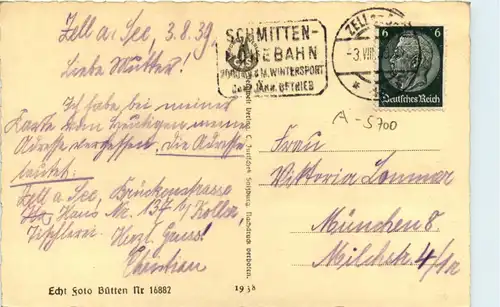 Zell a. See, 3.8.39.
Liebe Mutter!
Ich habe bei meiner
Karte von heutigen meine
Adresse vergessen. Die Adresse
lautet:
Zell a. See, Brückenstrasse
Haus Nr. 137 1/ Koller,
Tischlerei. Herzl. Gruss!
Christian
Echt Foto Bütten Nr 16882
SCHMITTEN-
HÖHEBAHN
2000 M Ü. M. WINTERSPORT
GANZJÄHR. BETRIEB
ZELL
3.VIII
6 6
Deutsches Reich
A-5700
Frau
Viktoria Lommar
München 8.
Milchstr. 4/1r
C. Jurischek Salzburg. Nachdruck verboten.
1938